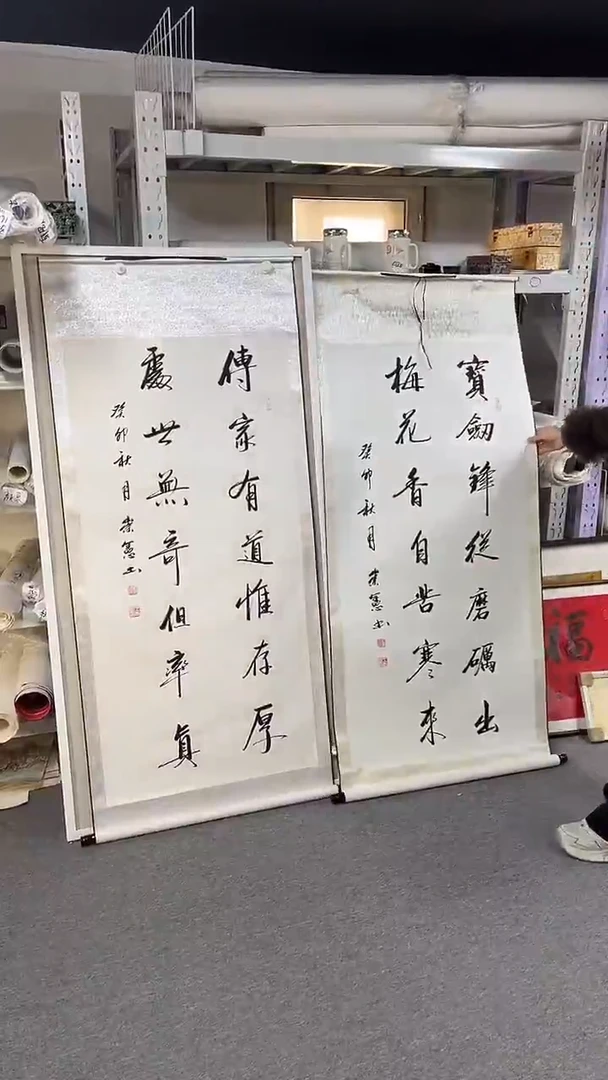 寶劍鋒從磨礪出
梅花香自苦寒來
癸卯秋月崇憲书
傳家有道惟存厚
處世無奇但率真
癸卯秋月崇憲书
福